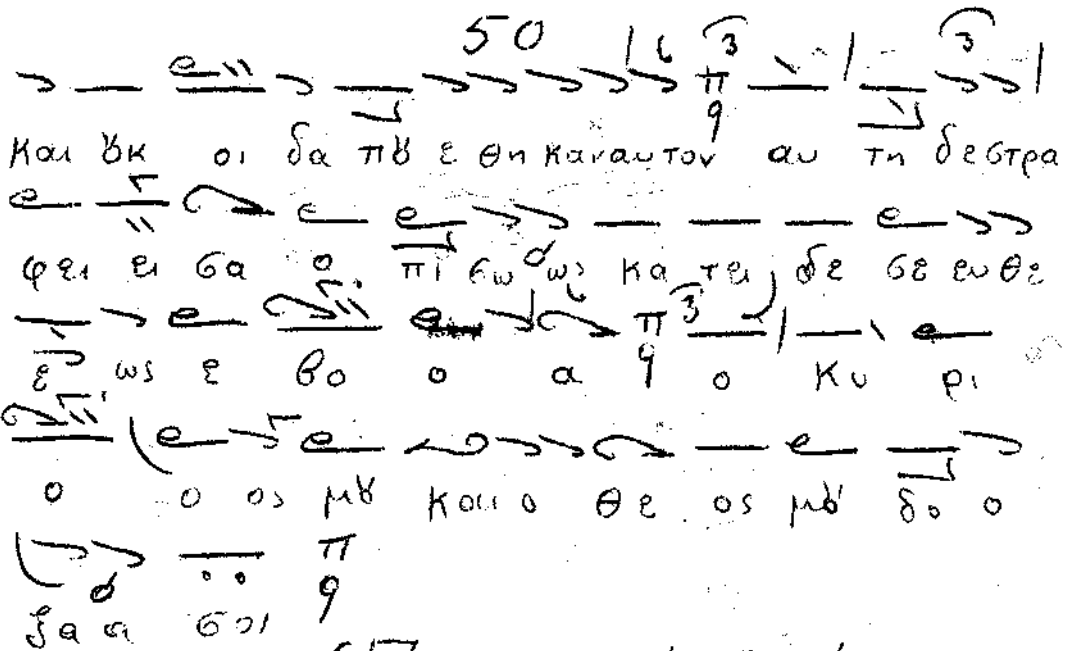 50
και ȣκ οι δα πȣ ε θη καναυτον αυ τη δε στρα
φει ει σα ο πι σω ως κα τει δε σε ευ θε
ε ως ε βο ο α ο Κυ ρι
ο ο ος μȣ και ο θε ος μȣ δο ο
ξα α σοι